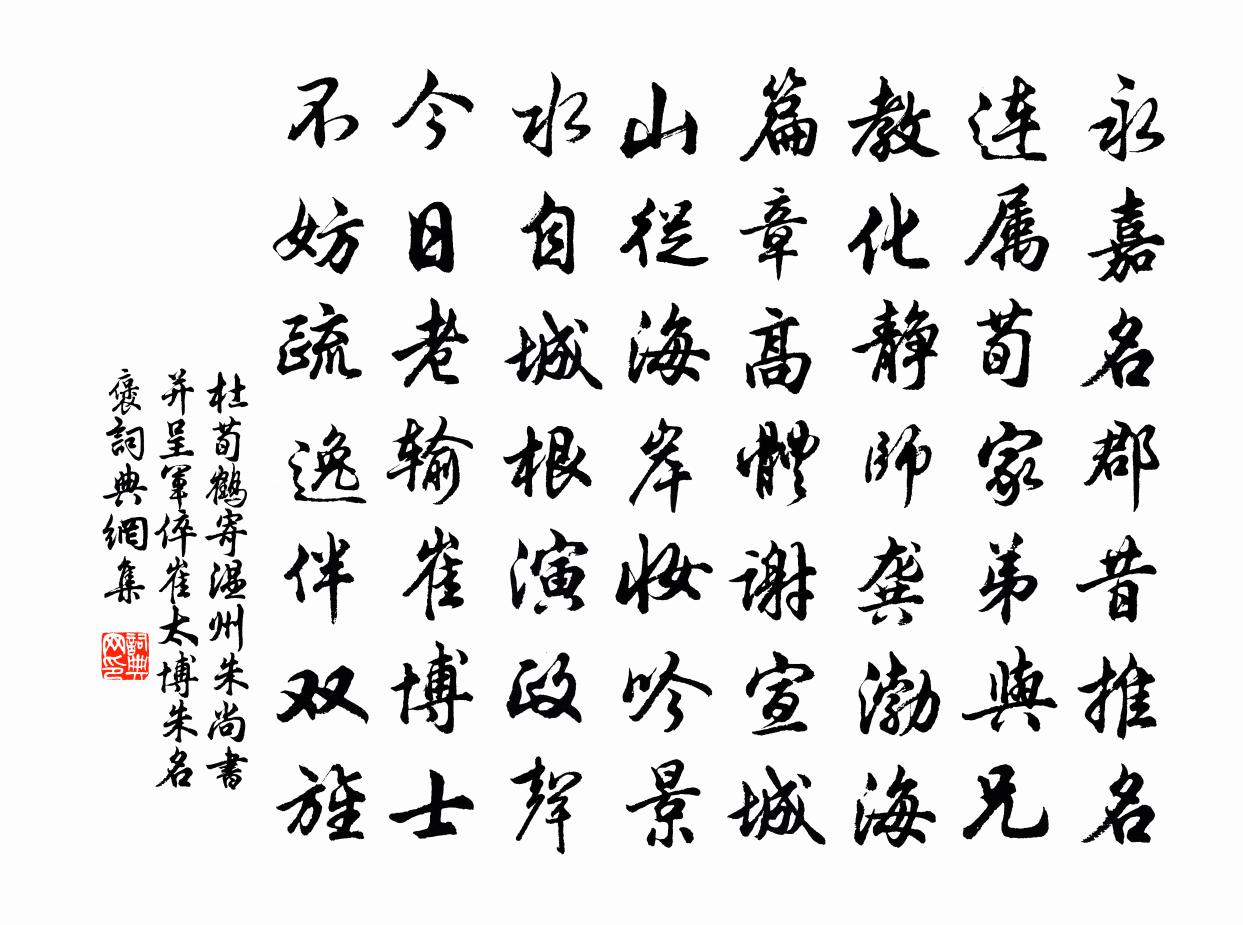 永嘉名郡昔推名
连属荀家弟與兄
教化静師龚渤海
篇章高體謝宣城
山從海岸妆吟景
水自城根演政聲
今日老输崔博士
不妨疏逸伴双旌
杜荀鶴寄温州朱尚書
并呈軍倅崔太博朱名
褒詞典網集
詞典网印